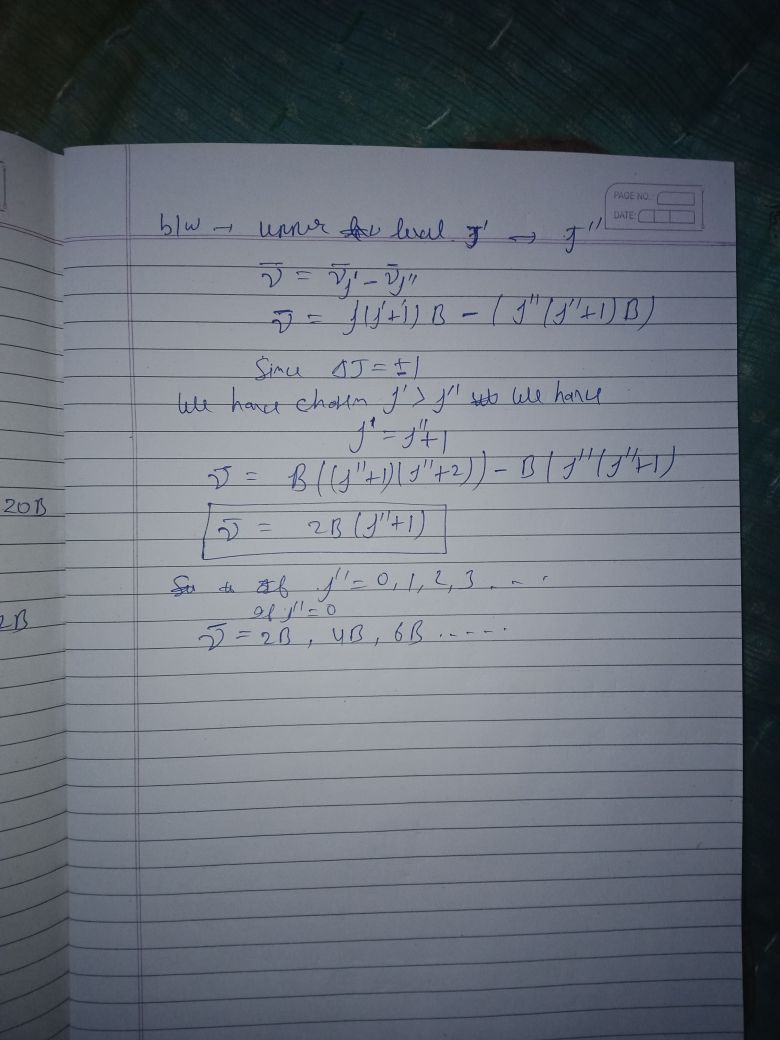 PAGE NO.:
DATE:
b/w → upper level J' → J''
ν̄ = ν̄J' - ν̄J''
ν̄ = J'(J'+1) B - ( J'' (J''+1) B)
Since ΔJ = ±1
We have chosen J' > J'' We have
J' = J''+1
ν̄ = B((J''+1)(J''+2)) - B (J''(J''+1)
ν̄ = 2B (J''+1)
20B
J'' = 0, 1, 2, 3 . - .
If J'' = 0
2B
ν̄ = 2B, 4B, 6B -----